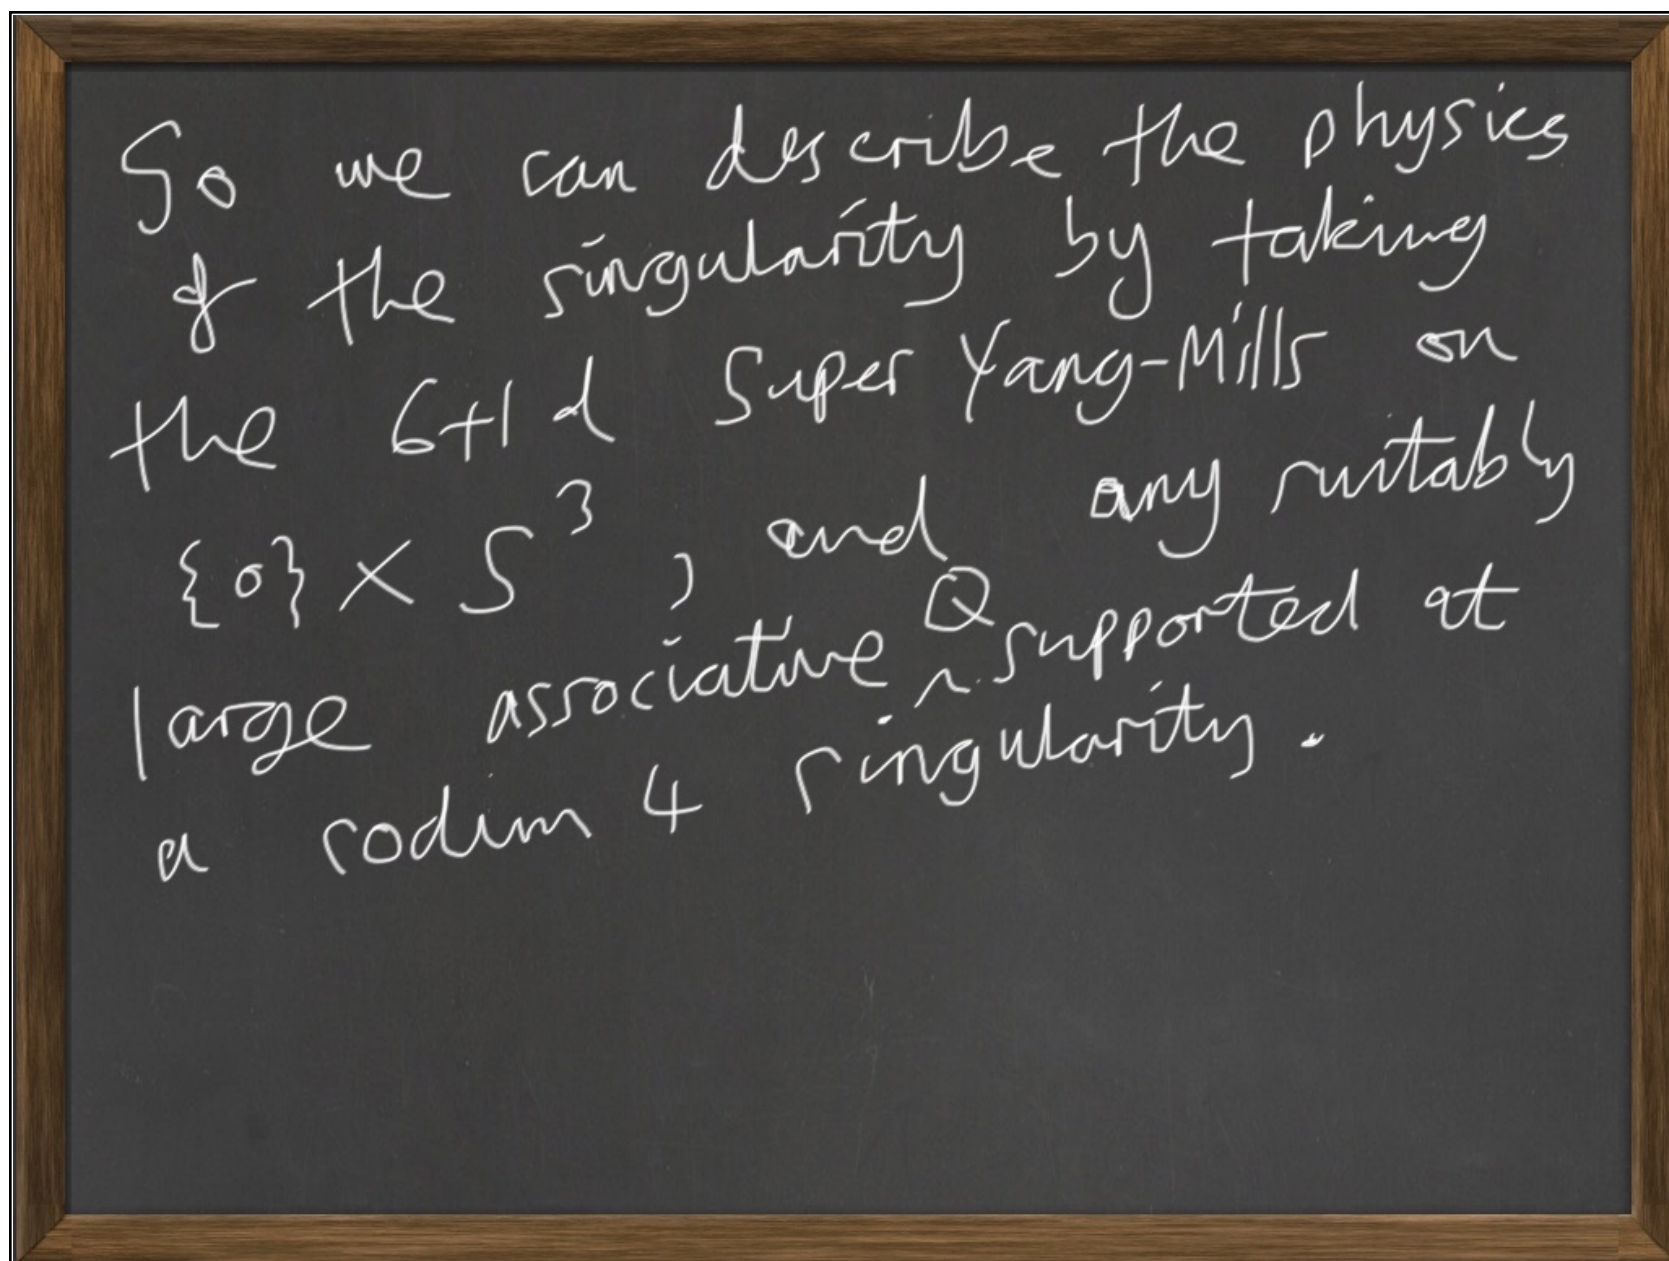 So we can describe the physics
of the singularity by taking
the 6+1 d Super Yang-Mills on
{0} × S³, and any suitably
large associative Q supported at
a codim 4 singularity.